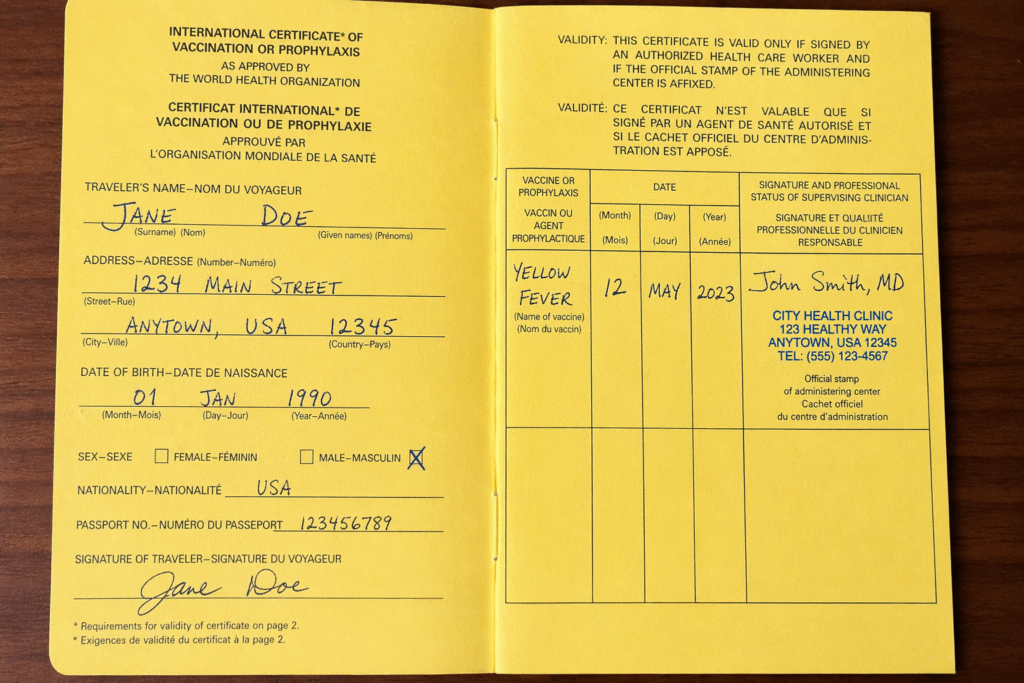 INTERNATIONAL CERTIFICATE* OF
VACCINATION OR PROPHYLAXIS
AS APPROVED BY
THE WORLD HEALTH ORGANIZATION
CERTIFICAT INTERNATIONAL* DE
VACCINATION OU DE PROPHYLAXIE
APPROUVÉ PAR
L'ORGANISATION MONDIALE DE LA SANTÉ
TRAVELER'S NAME–NOM DU VOYAGEUR
JANE DOE
(Surname) (Nom) (Given names) (Prénoms)
ADDRESS–ADRESSE (Number–Numéro)
1234 MAIN STREET
(Street–Rue)
ANYTOWN, USA 12345
(City–Ville) (Country–Pays)
DATE OF BIRTH–DATE DE NAISSANCE
01 JAN 1990
(Month–Mois) (Day–Jour) (Year–Année)
SEX–SEXE FEMALE–FÉMININ MALE–MASCULIN X
NATIONALITY–NATIONALITÉ USA
PASSPORT NO.–NUMÉRO DU PASSEPORT 123456789
SIGNATURE OF TRAVELER–SIGNATURE DU VOYAGEUR
Jane Doe
* Requirements for validity of certificate on page 2.
* Exigences de validité du certificat à la page 2.
VALIDITY: THIS CERTIFICATE IS VALID ONLY IF SIGNED BY
AN AUTHORIZED HEALTH CARE WORKER AND
IF THE OFFICIAL STAMP OF THE ADMINISTERING
CENTER IS AFFIXED.
VALIDITÉ: CE CERTIFICAT N'EST VALABLE QUE SI
SIGNÉ PAR UN AGENT DE SANTÉ AUTORISÉ ET
SI LE CACHET OFFICIEL DU CENTRE D'ADMINIS-
TRATION EST APPOSÉ.
VACCINE OR
PROPHYLAXIS
VACCIN OU
AGENT
PROPHYLACTIQUE
DATE
(Month) (Day) (Year)
(Mois) (Jour) (Année)
SIGNATURE AND PROFESSIONAL
STATUS OF SUPERVISING CLINICIAN
SIGNATURE ET QUALIITÉ
PROFESSIONNELLE DU CLINICIEN
RESPONSABLE
YELLOW
FEVER
(Name of vaccine)
(Nom du vaccin)
12 MAY 2023
John Smith, MD
CITY HEALTH CLINIC
123 HEALTHY WAY
ANYTOWN, USA 12345
TEL: (555) 123-4567
Official stamp
of administering center
Cachet officiel
du centre d'administration